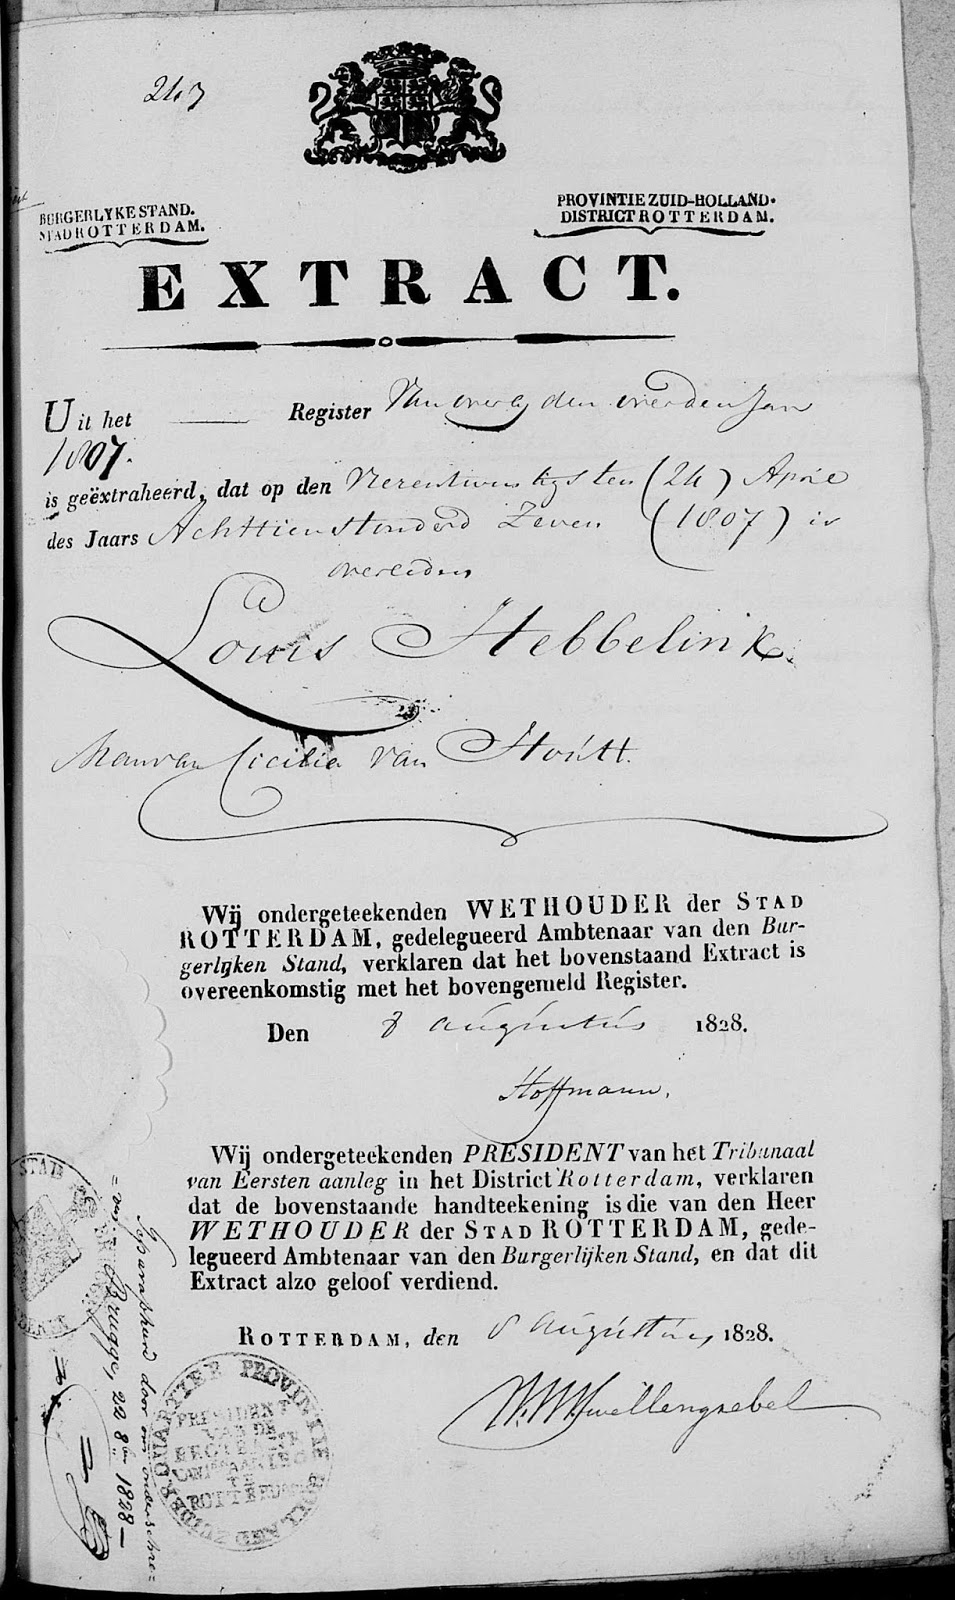 247
BURGERLYKE STAND.
STAD ROTTERDAM.
PROVINTIE ZUID-HOLLAND.
DISTRICT ROTTERDAM.
EXTRACT.
Uit het Register Van overleden over den Jare
1807.
is geëxtraheerd, dat op den Vierentwintigsten (24) April
des Jaars Achttienhonderd Zeven (1807) is
overleden
Louis Hebbelinck.
Man van Cicilia van Houtt.
Wij ondergeteekenden WETHOUDER der STAD
ROTTERDAM, gedelegueerd Ambtenaar van den Bur-
gerlijken Stand, verklaren dat het bovenstaand Extract is
overeenkomstig met het bovengemeld Register.
Den 8 augustus 1828.
Hoffmann.
Wij ondergeteekenden PRESIDENT van het Tribunaal
van Eersten aanleg in het District Rotterdam, verklaren
dat de bovenstaande handteekening is die van den Heer
WETHOUDER der STAD ROTTERDAM, gede-
legueerd Ambtenaar van den Burgerlijken Stand, en dat dit
Extract alzo geloof verdiend.
ROTTERDAM, den 8 augustus 1828.
Swellengrebel
Geparapheerd door ons onderschre=
=ven. Brugge, 22 8ber 1828 —
STAD
PROVINTIE
PRESIDENT
VAN DE
ROTTERDAM